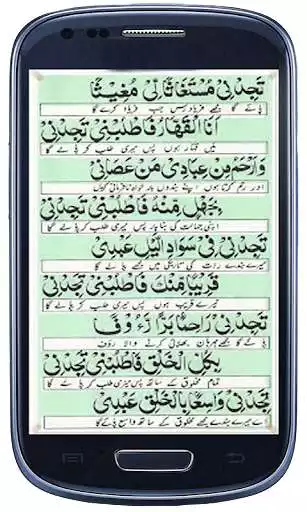 تَجِدْنِیْ مُسْتَغَاثًا لِّیْ مُغِيْثًا
پائے گا مجھے فریادرس جب فریاد کرے گا
اَنَا الْقَهَّارُ فَاطْلُبْنِیْ تَجِدْنِیْ
میں قہار ہوں پس میری طلب کر پائے گا
وَاَرْحَمُ مِنْ عِبَادِیْ مَنْ عَصَانِیْ
اور رحم کرتا ہوں اپنے بندوں پر نافرمانی کریں
بِجَهْلٍ مِنْهُ فَاطْلُبْنِیْ تَجِدْنِیْ
اپنی جہالت کی بنا پر پس میری طلب کر پائے گا
تَجِدْنِیْ فِیْ سَوَادِ اللَّيْلِ عَبْدِیْ
میرے بندے رات کی تاریکی میں مجھے پائے گا
قَرِيْبًا مِنْكَ فَاطْلُبْنِیْ تَجِدْنِیْ
تیرے قریب ہوں پس میری طلب کر پائے گا
تَجِدْنِیْ رَاحِمًا بَرًّا رَءُوْفًا
پائے گا مجھے مہربان بھلائی کرنے والا رؤف
بِكُلِّ الْخَلْقِ فَاطْلُبْنِیْ تَجِدْنِیْ
تمام مخلوق کے ساتھ پس میری طلب کر پائے گا
تَجِدْنِیْ وَاسِعًا بِالْخَلْقِ عَبْدِیْ
اے میرے بندے مجھے مخلوق کے ساتھ واسع پائے گا